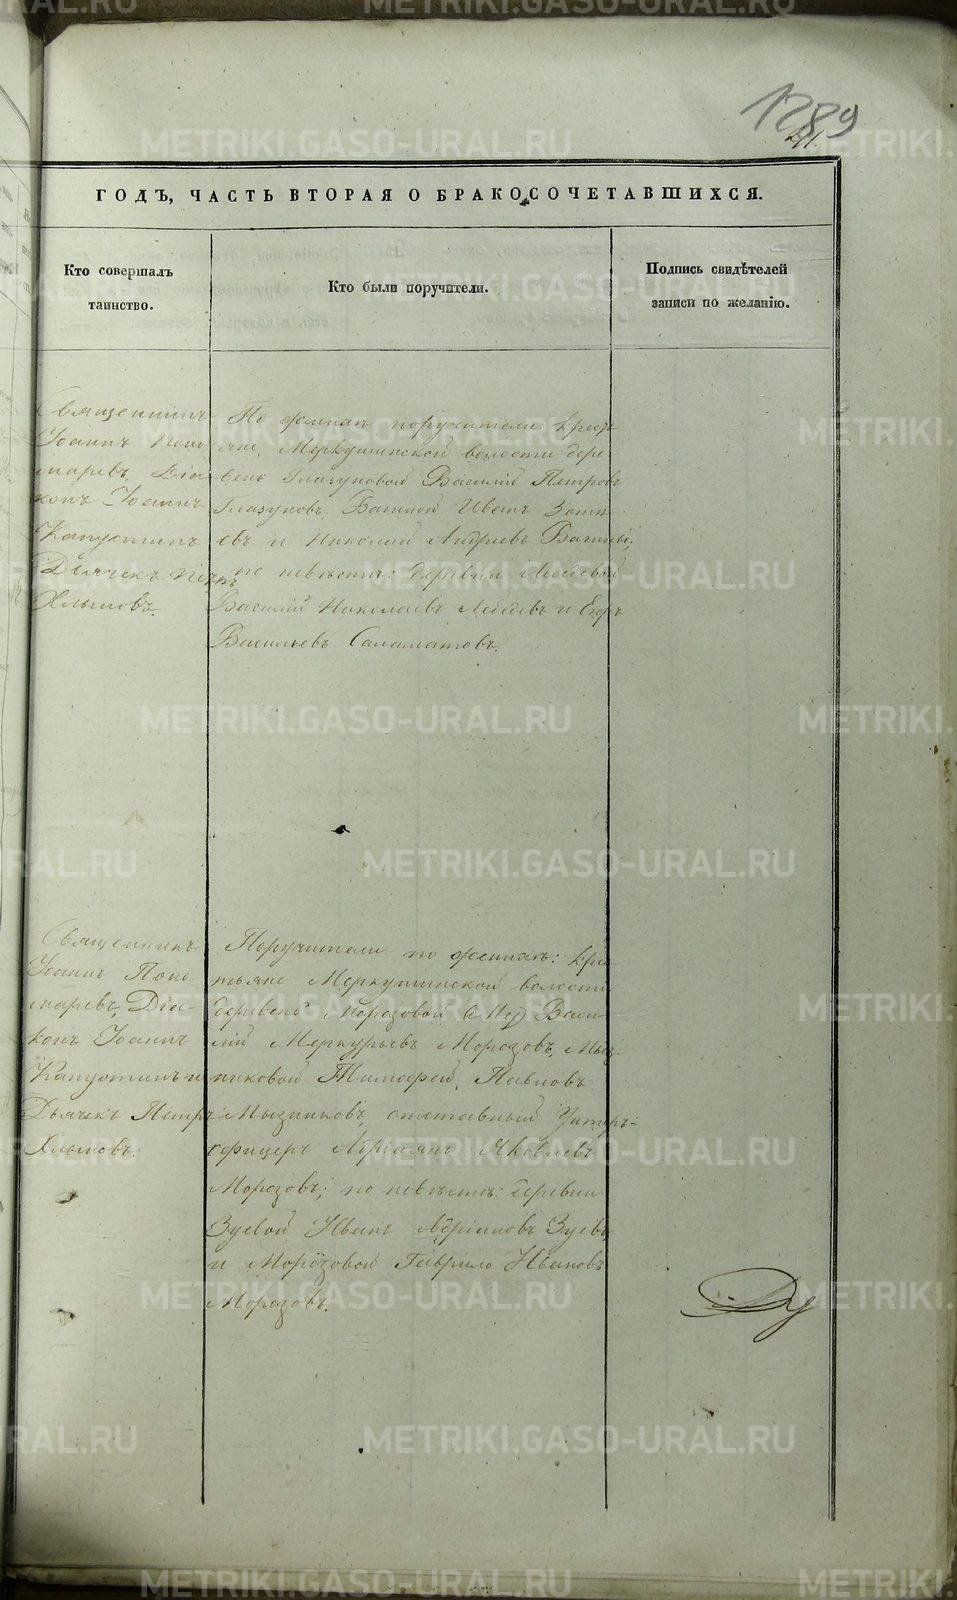 1289
41.
ГОДЪ, ЧАСТЬ ВТОРАЯ О БРАКОСОЧЕТАВШИХСЯ.
Кто совершалъ
таинство.
Кто были поручители.
Подпись свидѣтелей
записи по желанію.
Священникъ
Іоаннъ Поно
маревъ, Діа
конъ Іоаннъ
Капустинъ
Дьячекъ Петръ
Хлыновъ.
По женихѣ поручители: крест
яне, Меркушинской волости дере
вень Глазуновой Василій Петровъ
Глазуновъ, Вагиной Иванъ Зоти
евъ и Николай Андреевъ Вагины;
по невѣстѣ: деревни Лебедевой
Василій Николаевъ Лебедевъ и Егоръ
Васильевъ Саламатовъ.
Священникъ
Іоаннъ Поно
маревъ, Діа-
конъ Іоаннъ
Капустинъ и
Дьячекъ Петръ
Хлыновъ.
Поручители по женихѣ: крес
тьяне Меркушинской волости
деревень Морозовой Васи
лій Меркурьевъ Морозовъ, Мыз-
никовой Тимофей Павловъ
Мызниковъ, отставный Унтеръ-
офицеръ Адріанъ Яковлевъ
Морозовъ; по невѣстѣ: деревни
Зуевой Иванъ Адріановъ Зуевъ
и Морозовой Гаврило Ивановъ
Морозовъ.
METRIKI.GASO-URAL.RU